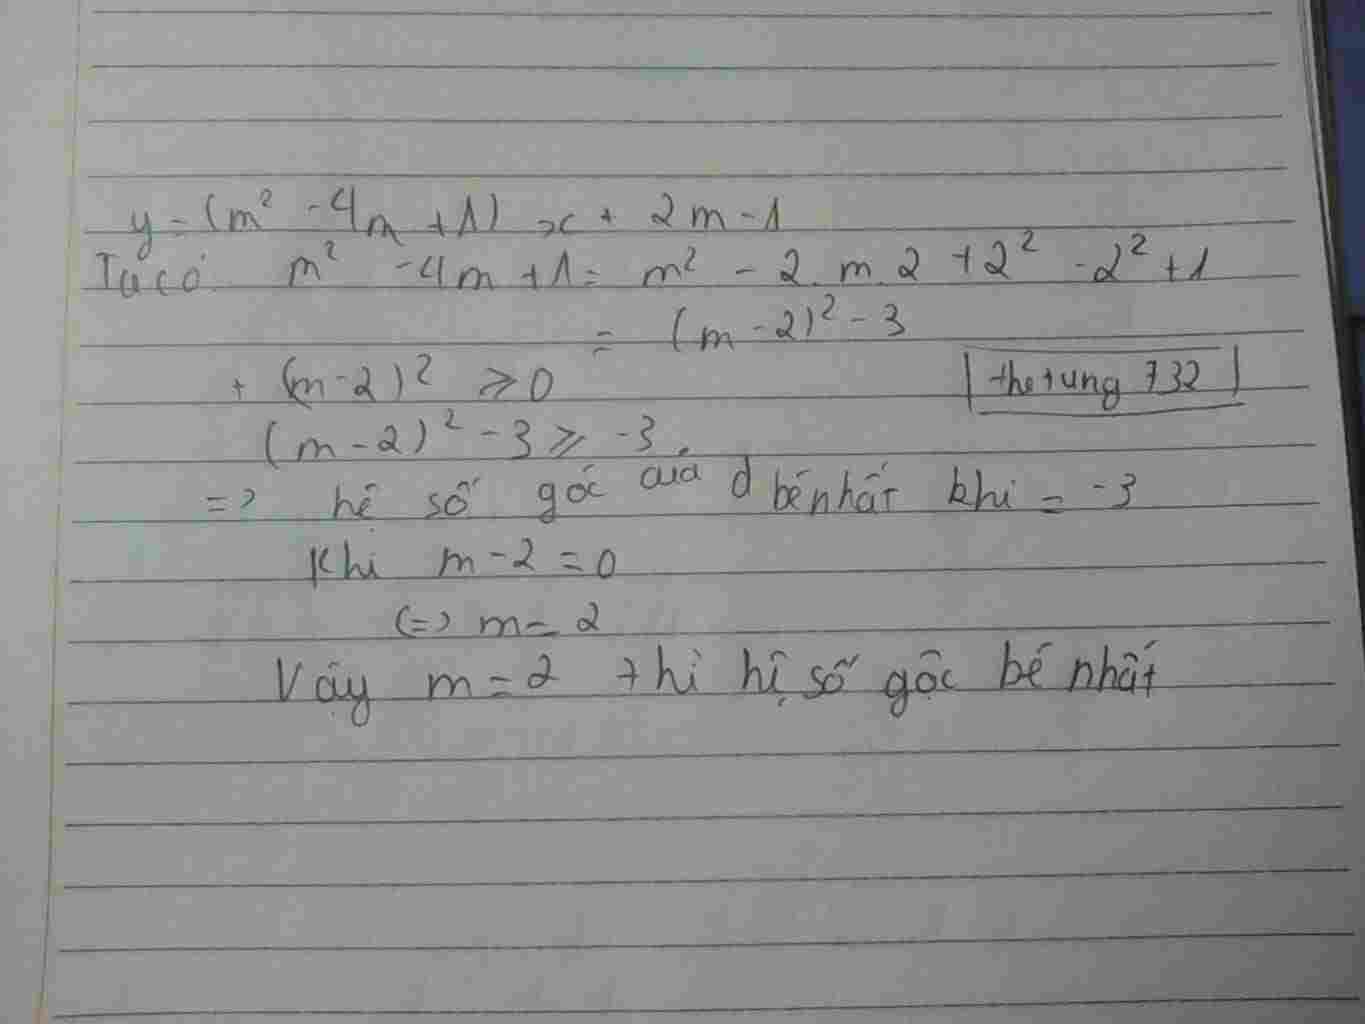 y = (m² - 4m + 1) x + 2m - 1
Ta có: m² - 4m + 1 = m² - 2.m.2 + 2² - 2² + 1
= (m - 2)² - 3
+ (m - 2)² ⩾ 0
thetung732
(m - 2)² - 3 ⩾ -3.
=> hệ số góc của d bé nhất khi = -3
Khi m - 2 = 0
<=> m = 2
Vậy m = 2 thì hệ số gộc bé nhất